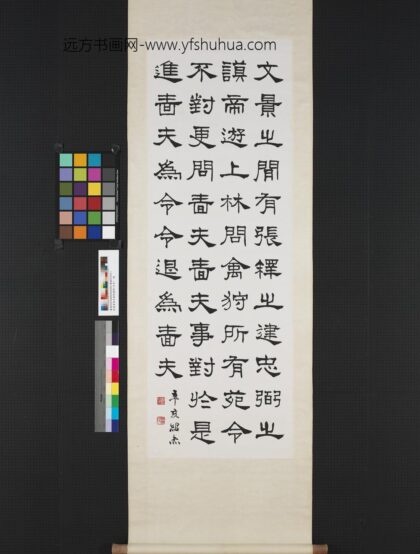 远方书画网-www.yfshuhua.com
文景之間有張釋之建忠弼之
謨帝遊上林問禽狩所有苑令
不對更問嗇夫嗇夫事對於是
進嗇夫為令令退為嗇夫
辛亥紹杰